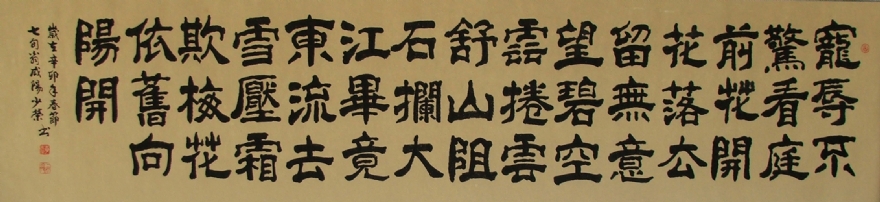 寵辱不
驚看庭
前花開
花落去
留無意
望碧空
雲捲雲
舒山阻
石攔大
江畢竟
東流去
雪壓霜
欺梅花
依舊向
陽開
歲在辛卯年春節
七旬翁咸陽少榮書